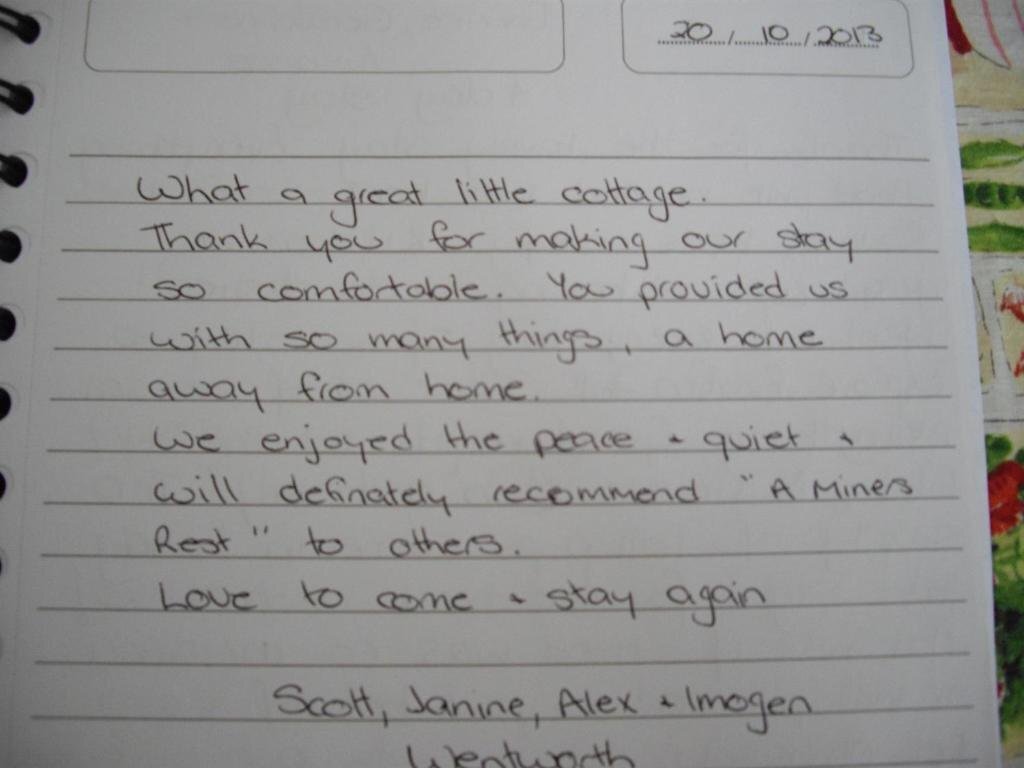 20 / 10 / 2013
What a great little cottage.
Thank you for making our stay
so comfortable. You provided us
with so many things, a home
away from home.
We enjoyed the peace + quiet +
will definately recommend "A Miners
Rest" to others.
Love to come + stay again
Scott, Janine, Alex + Imogen
Wentworth